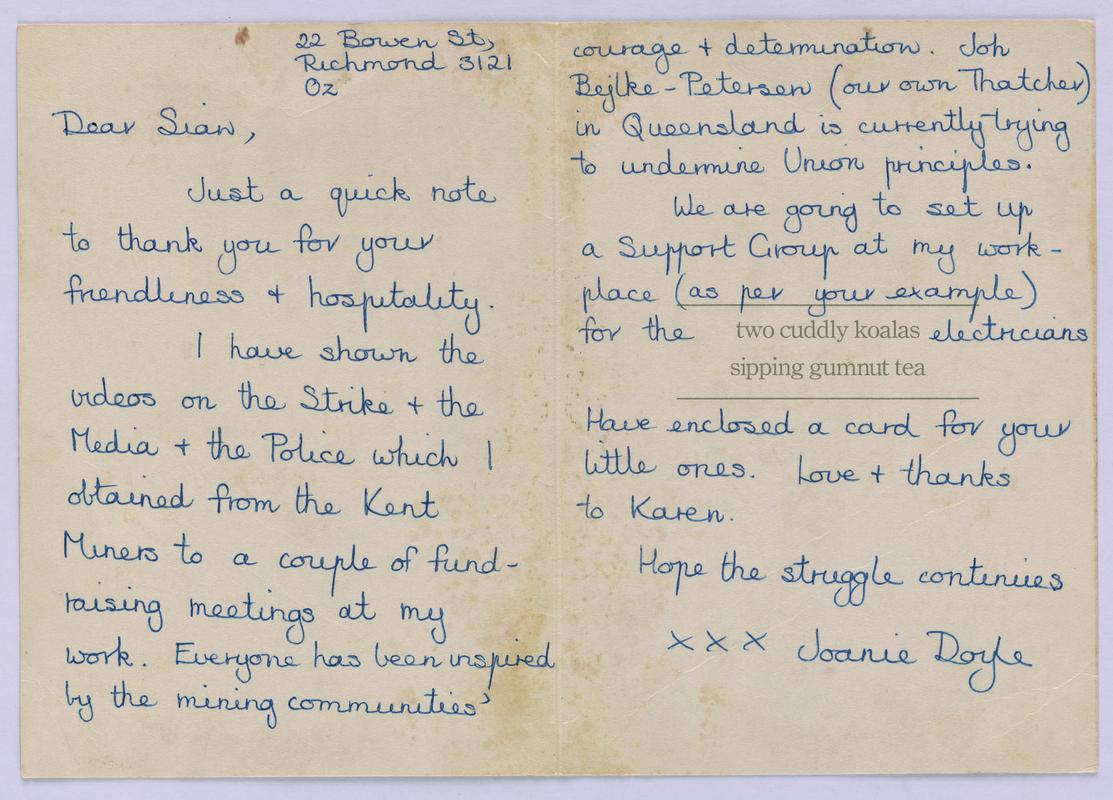 22 Bowen St,
Richmond 3121
Oz
Dear Sian,
Just a quick note
to thank you for your
friendliness + hospitality.
I have shown the
videos on the Strike + the
Media + the Police which I
obtained from the Kent
Miners to a couple of fund-
raising meetings at my
work. Everyone has been inspired
by the mining communities'
courage + determination. Joh
Bejlke-Petersen (our own Thatcher)
in Queensland is currently trying
to undermine Union principles.
We are going to set up
a Support Group at my work-
place (as per your example)
for the electricians
two cuddly koalas
sipping gumnut tea
Have enclosed a card for your
little ones. Love + thanks
to Karen.
Hope the struggle continues
x x x Joanie Doyle